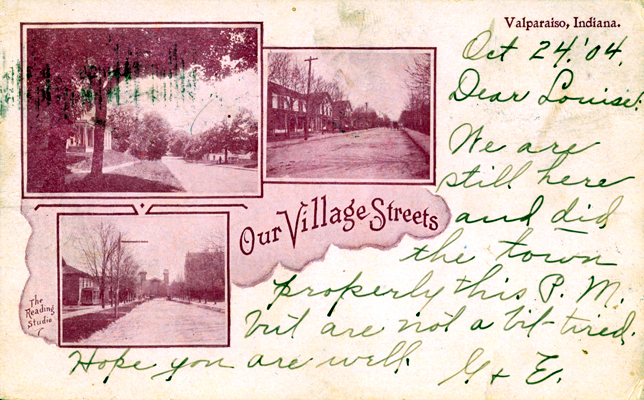 Valparaiso, Indiana.
Oct 24.'04.
Dear Louise:
We are
still here
and did
the town
properly this P. M.
but are not a bit tired.
Hope you are well.
G + E.
Our Village Streets
The
Reading
Studio